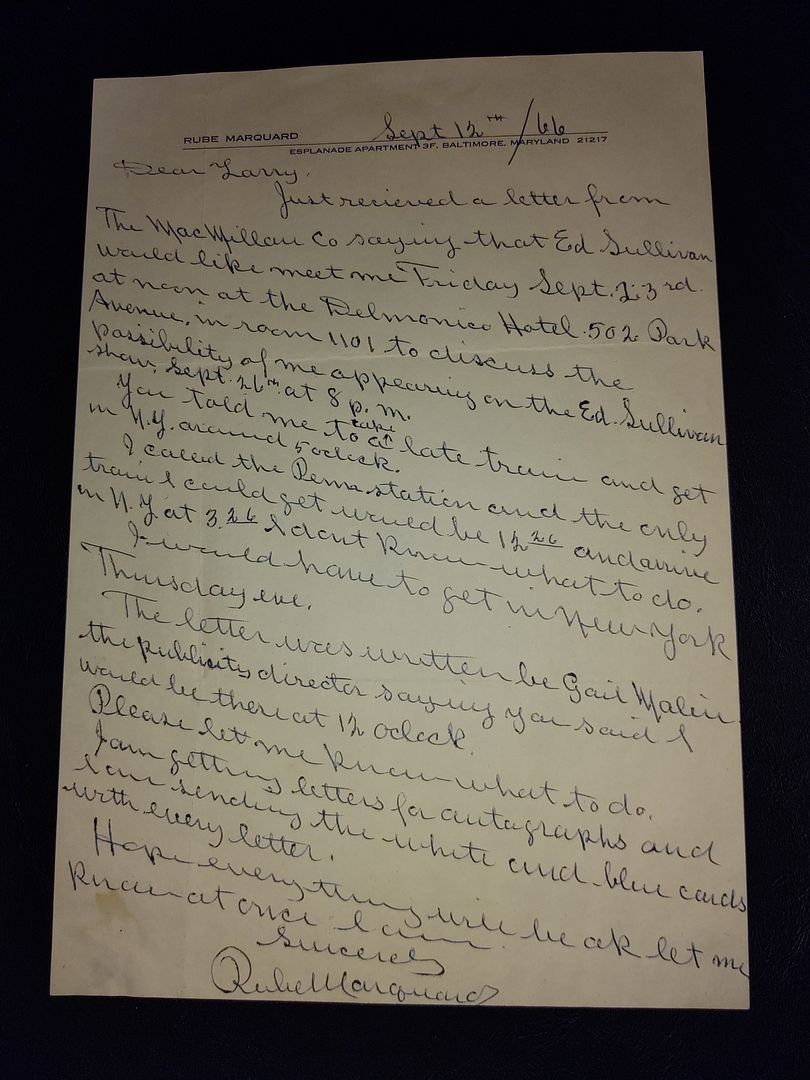 Sept 12TH/66
RUBE MARQUARD
ESPLANADE APARTMENT 3F, BALTIMORE, MARYLAND 21217
Dear Larry,
Just recieved a letter from
The MacMillan Co saying that Ed Sullivan
would like meet me Friday Sept. 23rd.
at noon at the Delmonico Hotel. 502 Park
Avenue, in room 1101 to discuss the
possibility of me appearing on the Ed. Sullivan
show, Sept. 26TH at 8 p.m.
You told me to take a late train and get
in N.Y. around 5 oclock.
I called the Penna. station and the only
train I could get would be 12 26 and arrive
in N.Y at 3.26 I dont know what to do.
I would have to get in New York
Thursday eve.
The letter was written be Gail Malin.
the publicity director saying you said I
would be there at 12 oclock.
Please let me know what to do.
I am getting letters for autographs and
I am sending the white and blue cards
with every letter.
Hope everything will be ok let me
know at once I am
Sincerely
Rube Marquard